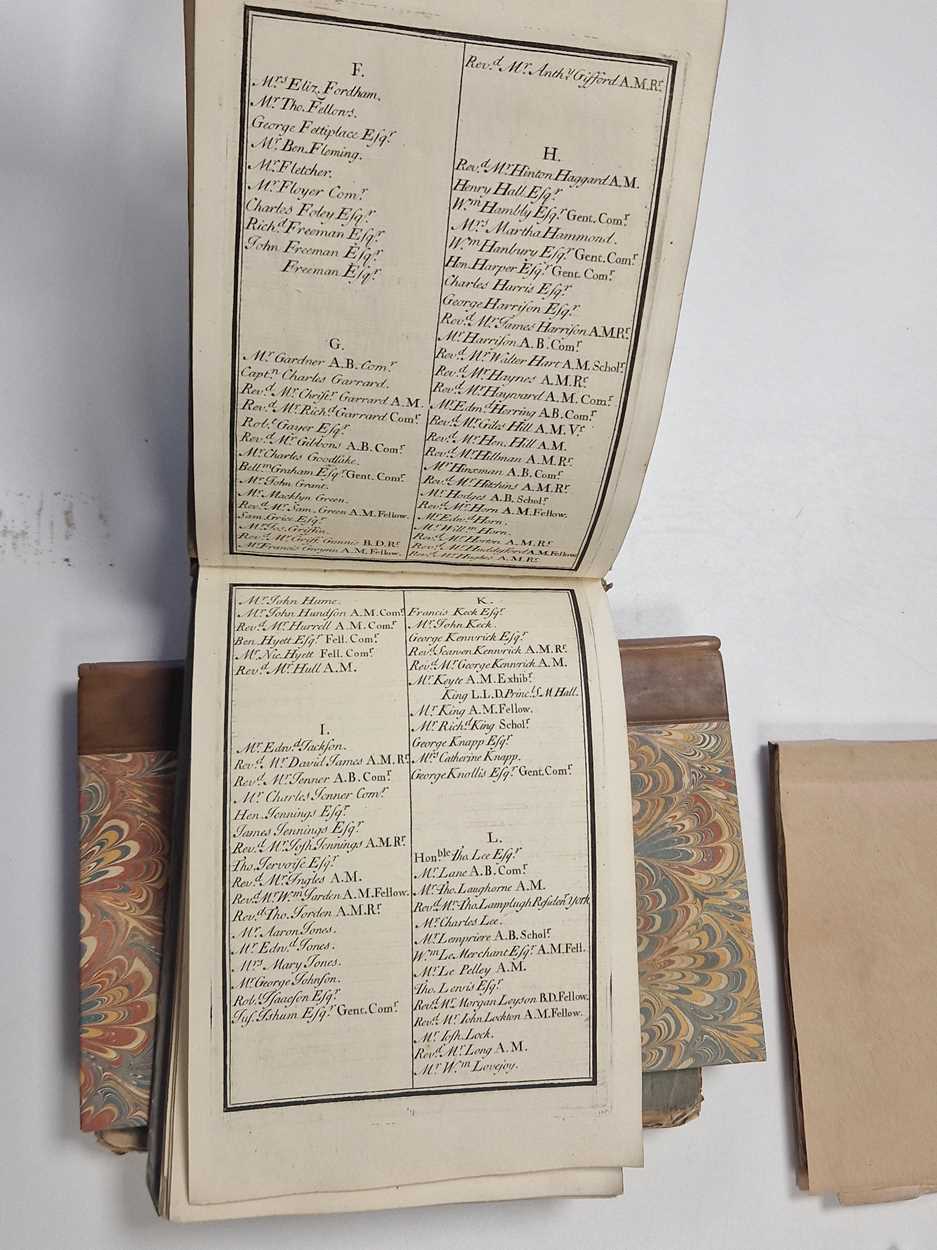 F.
Mrs Eliz. Fordham.
Mr Tho. Fellows.
George Fettiplace Eſqr
Mr Ben. Fleming.
Mr Fletcher.
Mr Floyer Comr
Charles Foley Eſqr
Richd Freeman Eſqr
John Freeman Eſqr
Freeman Eſqr
G.
Mr Gardner A.B. Comr
Captn Charles Garrard.
Revd Mr Chriſtr Garrard A.M.
Revd Mr Richd Garrard Comr
Robt Gayer Eſqr
Revd Mr Gibbons A.B. Comr
Mr Charles Goodlake.
Bellm Graham Eſqr Gent. Comr
Mr John Grant.
Mr Macklyn Green.
Revd Mr Sam. Green A.M. Fellow.
Sam. Grice Eſqr
Mr Jos. Griffin.
Revd Mr Griff. Gunnis B.D. Rr
Mr Francis Gwynn A.M. Fellow.
Revd Mr Anthy Gifford A.M. Rr
H.
Revd Mr Hinton Haggard A.M.
Henry Hall Eſqr
Wm Hambly Eſqr Gent. Comr
Mrs Martha Hammond.
Wm Hanbury Eſqr Gent. Comr
Hen. Harper Eſqr Gent. Comr
Charles Harris Eſqr
George Harriſon Eſqr
Revd Mr James Harriſon A.M. Rr
Mr Harriſon A.B. Comr
Revd Mr Walter Hart A.M. Scholr
Revd Mr Haynes A.M. Rr
Revd Mr Hayward A.M. Comr
Mr Edmd Herring A.B. Comr
Revd Mr Giles Hill A.M. Vr
Revd Mr Hen. Hill A.M.
Revd Mr Hillman A.M. Rr
Mr Hinxman A.B. Comr
Revd Mr Hitchins A.M. Rr
Mr Hodges A.B. Scholr
Revd Mr Horn A.M. Fellow.
Mr Edwd Horn.
Mr Willm Horn.
Revd Mr Horton A.M. Rr
Revd Mr Huddyford A.M. Fellow
Revd Mr Hughes A.M. Rr
Mr John Hume.
Mr John Hundſon A.M. Comr
Revd Mr Hurrell A.M. Comr
Ben. Hyett Eſqr Fell. Comr
Mr Nic. Hyett Fell. Comr
Revd Mr Hull A.M.
I.
Mr Edwd Jackſon.
Revd Mr David James A.M. Rr
Revd Mr Jenner A.B. Comr
Mr Charles Jenner Comr
Hen. Jennings Eſqr
James Jennings Eſqr
Revd Mr Joſh. Jennings A.M. Rr
Tho. Jervoiſe Eſqr
Revd Mr Ingles A.M.
Revd Mr Wm Jarden A.M. Fellow.
Revd Tho. Jorden A.M. Rr
Mr Aaron Jones.
Mr Edwd Jones.
Mrs Mary Jones.
Mr George Johnſon.
Robt Iſaacſon Eſqr
Juſ. Iſhum Eſqr Gent. Comr
K.
Francis Keck Eſqr
Mr John Keck.
George Kenwrick Eſqr
Revd Scawen Kenwrick A.M. Rr
Revd Mr George Kenwrick A.M.
Mr Keyte A.M. Exhibr
King L.L.D. Princl S. M. Hall.
Mr King A.M. Fellow.
Mr Richd King Scholr
George Knapp Eſqr
Mrs Catherine Knapp.
George Knollis Eſqr Gent. Comr
L.
Honble Tho. Lee Eſqr
Mr Lane A.B. Comr
Mr Tho. Laughorne A.M.
Revd Mr Tho. Lamplugh Reſidenr York
Mr Charles Lee.
Mr Lempriere A.B. Scholr
Wm Le Merchant Eſqr A.M. Fell.
Mr Le Pelley A.M.
Tho. Lewis Eſqr
Revd Mr Morgan Leyson B.D. Fellow.
Revd Mr John Lockton A.M. Fellow.
Mr Joſh. Lock.
Revd Mr Long A.M.
Mr Wm Lovejoy.